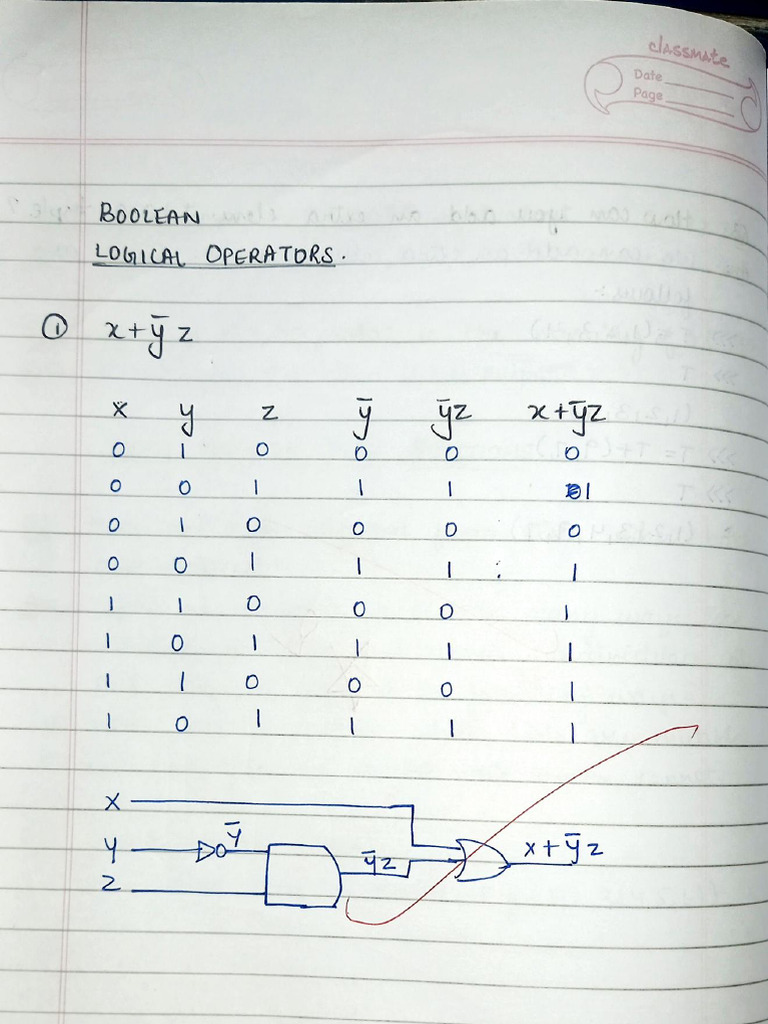 classmate
Date
Page
BOOLEAN
LOGICAL OPERATORS.
① x+ȳz
x y z ȳ ȳz x+ȳz
0 1 0 0 0 0
0 0 1 1 1 1
0 1 0 0 0 0
0 0 1 1 1 : 1
1 1 0 0 0 1
1 0 1 1 1 1
1 1 0 0 0 1
1 0 1 1 1 1
x
y ȳ ȳz x+ȳz
z